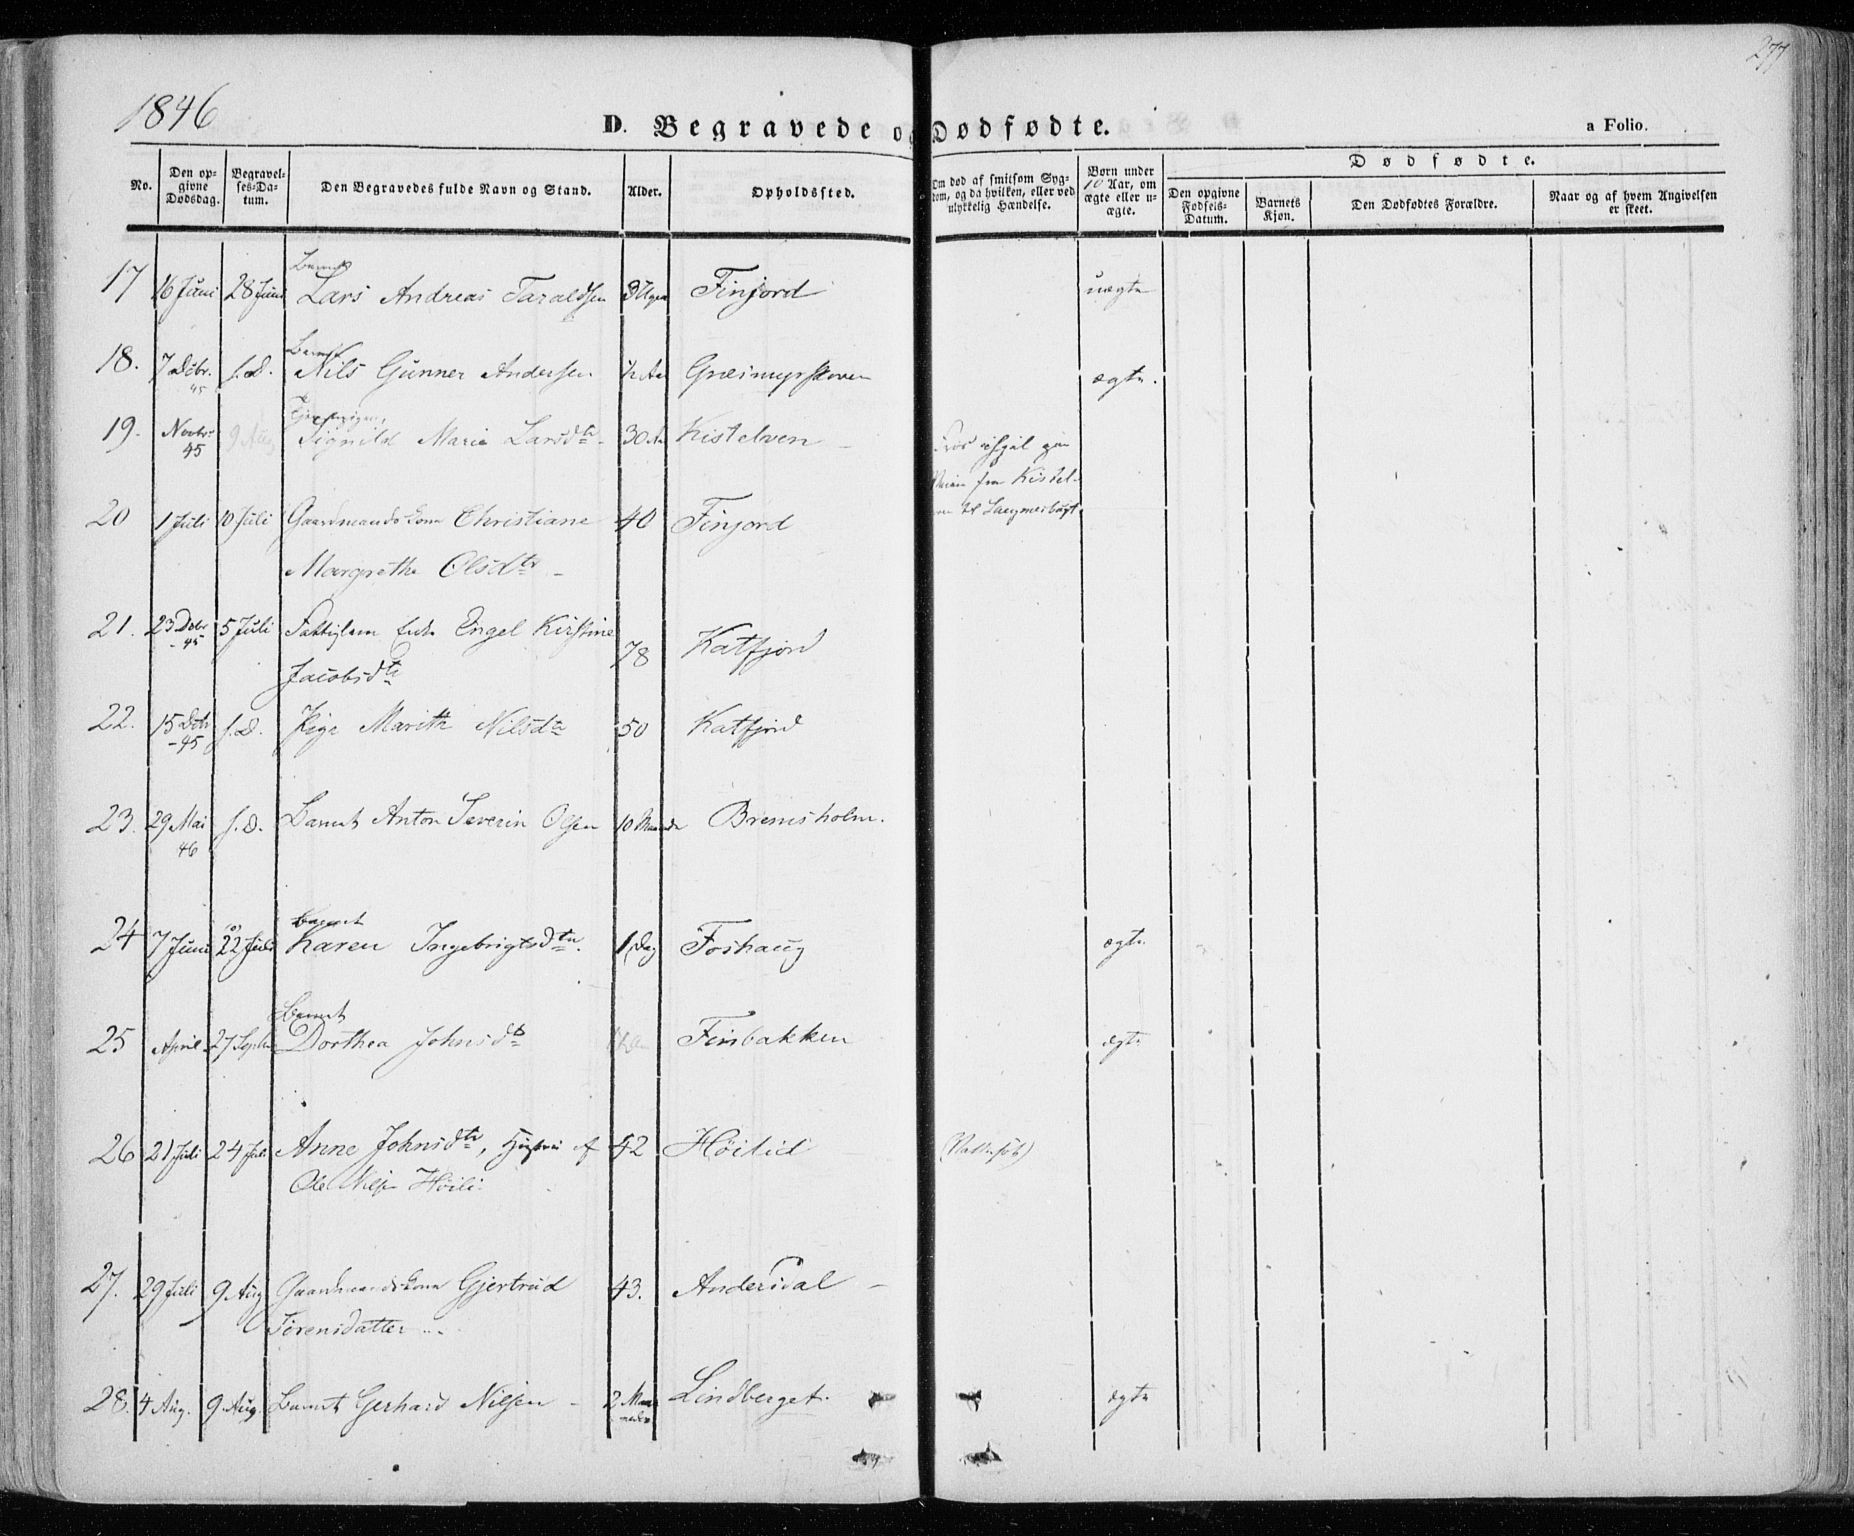 1846
277
D. Begravede og Dødfødte.
a Folio.
No.
Den opgivne Dødsdag.
Begravelses-Datum.
Den Begravedes fulde Navn og Stand.
Alder.
Opholdssted.
Om død af smitsom Sygdom, og da hvilken, eller ved ulykkelig Hændelse.
Børn under 10 Aar, om ægte eller uægte.
Dødfødte.
Den opgivne Fødsels-Datum.
Barnets Kjøn.
Den Dødfødtes Forældre.
Naar og af hvem Angivelsen er skeet.
17 16 Juni 28 Juni Barnet Lars Andreas Taraldsen 3 Uger Finjord uægte
18. 7 Debr. 45 s.D. Barnet Nils Gunner Andersen ½ Aar Græsmyrskoven ægte.
19. Novbr 45 9 Aug Signild Marie Larsdtr 30 Aar Kistelven
fra Kistel-
20 1 Juli 10 Juli Gaardmandskone Christiane 40 Finjord
Margrethe Olsdtr
21. 23 Debr 45 5 Juli Fattiglem Enke Engel Kirstine 78 Katfjord
Jacobsdtr
22. 15 Debr 45 s.D. Pige Marith Nilsdtr 50 Katfjord
23. 29 Mai 46 s.D. Barnet Anton Severin Olsen 10 Maaneder Bremsholm.
24 7 Juni 22 Juli Barnet Karen Ingebrigtsdtr. 1 Dag Foshaug ægte
25 April 27 Septbr Barnet Dorthea Johnsdtr Finbakken ægte
26 21 Juli 24 Juli Anne Johnsdtr, Hustru af 42 Høilid
Ole Nilsen Høili
27. 29 Juli 9 Aug Gaardmandskone Gjertrud 43. Andersdal
Sørensdatter
28. 4 Aug. 9 Aug. Barnet Gerhard Nilsen 2 Maaneder Lindberget. ægte